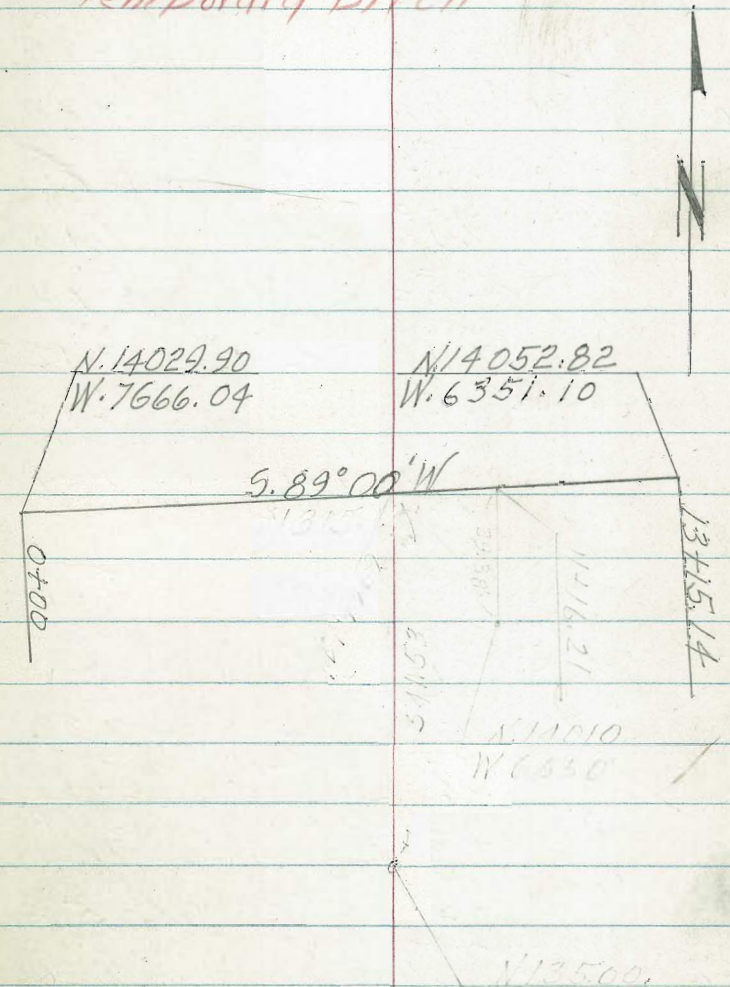 Temporary Ditch
N
N.14029.90
W.7666.04
N.14052.82
W.6351.10
S.89°00'W
0+00
13+15.14
11+16.21
N.14010
W.6550
N.13500.